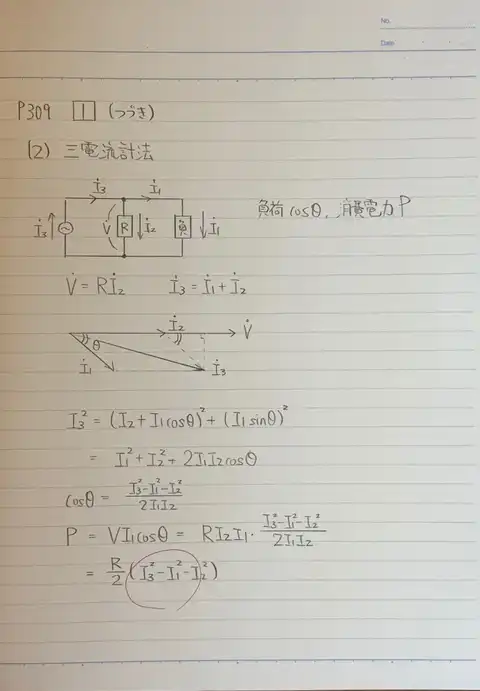 No.
Date
P309 1 (つづき)
(2) 三電流計法
İ₃ İ₁
İ₃ V̇ R İ₂ 負 İ₁
負荷 cosθ, 消費電力 P
V̇ = Rİ₂ İ₃ = İ₁ + İ₂
İ₂ V̇
θ
İ₁ İ₃
I₃² = (I₂ + I₁cosθ)² + (I₁sinθ)²
= I₁² + I₂² + 2I₁I₂cosθ
cosθ = (I₃² - I₁² - I₂²) / 2I₁I₂
P = VI₁cosθ = RI₂I₁ · (I₃² - I₁² - I₂²) / 2I₁I₂
= R/2 (I₃² - I₁² - I₂²)